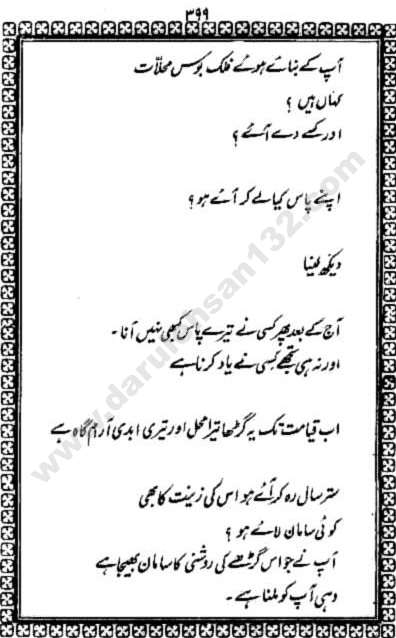 ۳۹۹
آپ کے بنائے ہوئے فلک بوس محلّات
کہاں ہیں ؟
اور کسے دے آئے ؟
اپنے پاس کیا لے کر آئے ہو ؟
دیکھ لینا
آج کے بعد پھر کسی نے تیرے پاس کبھی نہیں آنا ۔
اور نہ ہی تجھے کسی نے یاد کرنا ہے
اب قیامت تک یہ گڑھا تیرا محل اور تیری ابدی آرام گاہ ہے
ستر سال رہ کر آئے ہو اس کی زینت کا بھی
کوئی سامان لائے ہو ؟
آپ نے جو اس گڑھے کی روشنی کا سامان بھیجا ہے
وہی آپ کو ملنا ہے ۔
www.darulehsan132.com